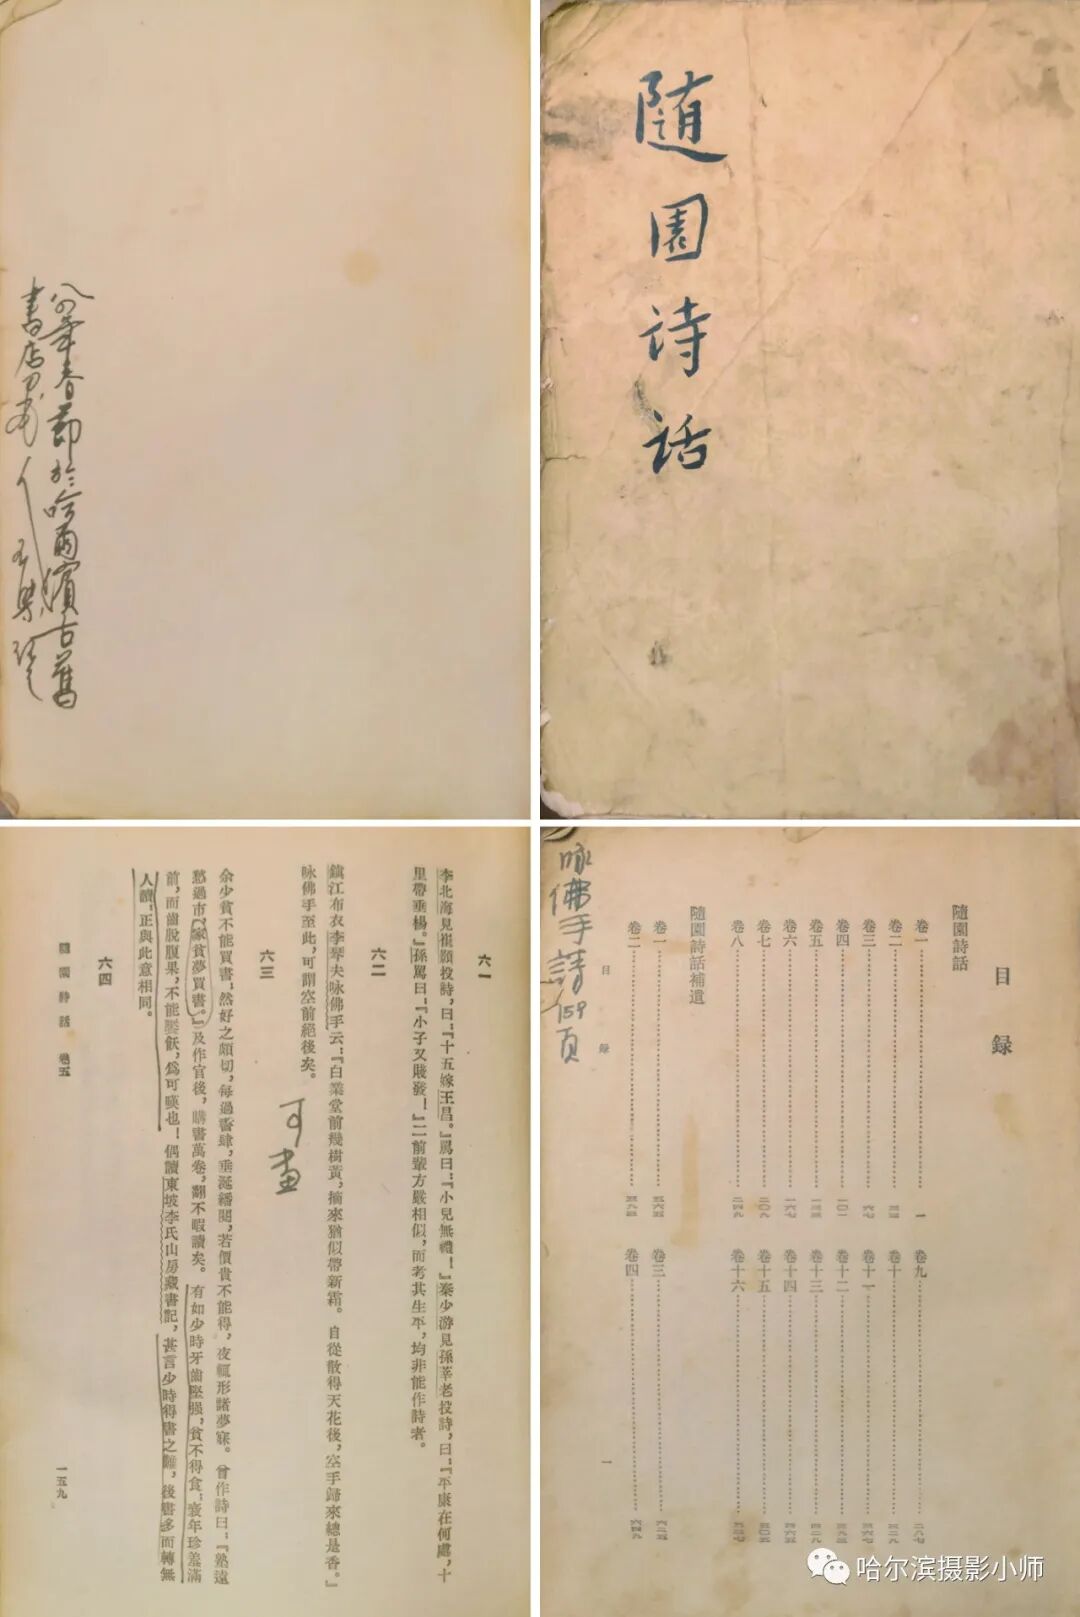 年春節於哈爾濱古舊
書店
随園诗话
六一
李北海見崔顥投詩，曰：『十五嫁王昌。』罵曰：『小兒無禮！』秦少游見孫莘老投詩，曰：『平康在何處，十
里帶垂楊。』孫罵曰：『小子又賤發！』二前輩方嚴相似，而考其生平，均非能作詩者。
六二
鎮江布衣李琴夫咏佛手云：『白業堂前幾樹黃，摘來猶似帶新霜。自從散得天花後，空手歸來總是香。』
咏佛手至此，可謂空前絕後矣。
可畫
六三
余少貧不能買書，然好之頗切，每過書肆，垂涎繙閱，若價貴不能得，夜輒形諸夢寐。曾作詩曰：『塾遠
愁過市，家貧夢買書。』及作官後，購書萬卷，翻不暇讀矣。有如少時牙齒堅强，貧不得食；衰年珍羞滿
前，而齒脫腹果，不能饜飫，爲可嘆也！偶讀東坡李氏山房藏書記，甚言少時得書之難，後書多而轉無
人讀：正與此意相同。
六四
隨園詩話　卷五
一五九
目錄
隨園詩話
卷一 一 卷九 二八七
卷二 三三 卷十 三二九
卷三 六七 卷十一 三六七
卷四 一〇一 卷十二 三九三
卷五 一三三 卷十三 四二九
卷六 一六七 卷十四 四六五
卷七 二〇九 卷十五 五〇五
卷八 二四九 卷十六 五三七
隨園詩話補遺
卷一 五六五 卷三 六二五
卷二 五九三 卷四 六四九
目錄
一
咏佛手詩159頁
哈尔滨摄影小师